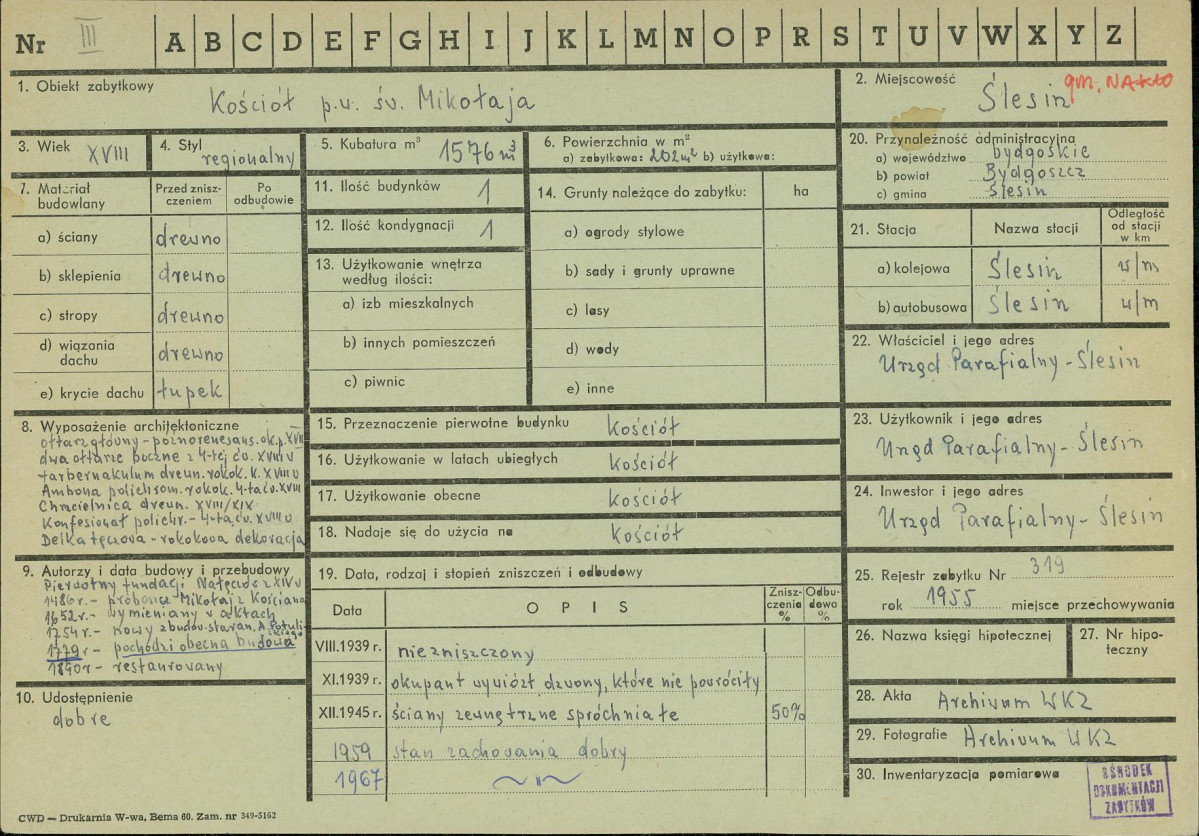 Nr III A B C D E F G H I J K L M N O P R S T U V W X Y Z
1. Obiekt zabytkowy
Kościół p.w. św. Mikołaja
2. Miejscowość
Ślesin gm. NAKŁO
3. Wiek XVIII
4. Styl
regionalny
5. Kubatura m³ 1576 m³
6. Powierzchnia w m²
a) zabytkowa: 202 m² b) użytkowa:
20. Przynależność administracyjna
a) województwo bydgoskie
b) powiat Bydgoszcz
c) gmina Ślesin
7. Materiał budowlany
Przed zniszczeniem
Po odbudowie
a) ściany drewno
b) sklepienia drewno
c) stropy drewno
d) wiązania dachu drewno
e) krycie dachu łupek
11. Ilość budynków 1
12. Ilość kondygnacji 1
13. Użytkowanie wnętrza
według ilości:
a) izb mieszkalnych
b) innych pomieszczeń
c) piwnic
14. Grunty należące do zabytku: ha
a) ogrody stylowe
b) sady i grunty uprawne
c) lasy
d) wody
e) inne
21. Stacja
Nazwa stacji
Odległość od stacji w km
a) kolejowa Ślesin w/m
b) autobusowa Ślesin w/m
22. Właściciel i jego adres
Urząd Parafialny - Ślesin
8. Wyposażenie architektoniczne
ołtarz główny - późnorenesans. ok. p. XVII
dwa ołtarze boczne z 4-tej ćw. XVIII w
tarbernakulum drewn. rokok. k. XVIII w
Ambona polichrom. rokok. 4-ta ćw. XVIII
Chrzcielnica drewn. XVIII/XIX
Konfesjonał polichr. - 4-ta ćw. XVIII w
Belka tęczowa - rokokowa dekoracja
15. Przeznaczenie pierwotne budynku Kościół
16. Użytkowanie w latach ubiegłych Kościół
17. Użytkowanie obecne Kościół
18. Nadaje się do użycia na Kościół
23. Użytkownik i jego adres
Urząd Parafialny - Ślesin
24. Inwestor i jego adres
Urząd Parafialny - Ślesin
9. Autorzy i data budowy i przebudowy
Pierwotny fundacji Nałęczów z XIV w
1486 r. - proboszcz Mikołaj z Kościana
1652 r. - wymieniany w aktach
1754 r. - nowy zbudow. staran. A. Potulickiego
1779 r - pochodzi obecna budowa
1890 r - restaurowany
10. Udostępnienie
dobre
19. Data, rodzaj i stopień zniszczeń i odbudowy
Data
OPIS
Zniszczenia %
Odbudowa %
VIII.1939 r. niezniszczony
XI.1939 r. okupant wywiózł dzwony, które nie powróciły
XII.1945 r. ściany zewnętrzne spróchniałe 50%
1959 stan zachowania dobry
1967 ~ " ~
25. Rejestr zabytku Nr 319
rok 1955 miejsce przechowywania
26. Nazwa księgi hipotecznej
27. Nr hipoteczny
28. Akta Archiwum WKZ
29. Fotografie Archiwum WKZ
30. Inwentaryzacja pomiarowa
OŚRODEK
DOKUMENTACJI
ZABYTKÓW
CWD — Drukarnia W-wa, Bema 60. Zam. nr 349-5162